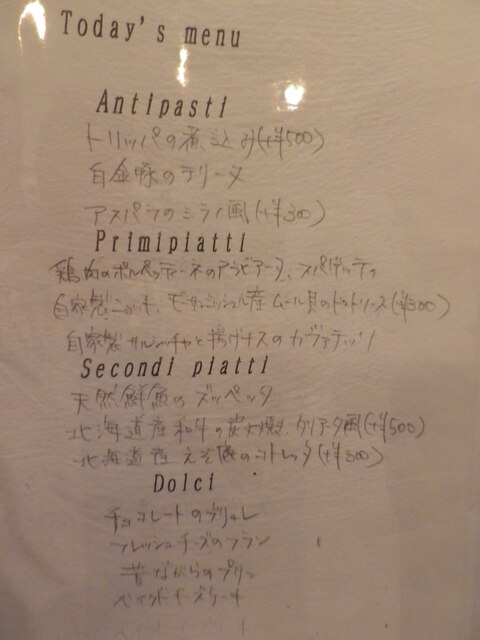 Today's menu
Antipasti
トリッパの煮込み(+¥500)
白金豚のテリーヌ
アスパラのミラノ風(+¥300)
Primipiatti
鶏肉のポルペッティーネのアラビアータ、スパゲッティ
自家製ニョッキ、モンサンミッシェル産ムール貝の(+¥300)
自家製サルシッチャと揚げナスのカヴァテッリ
Secondi piatti
天然鮮魚のズッペッタ
北海道産和牛の炭火焼、タリアータ風(+¥500)
北海道産えぞ鹿のコトレッタ(+¥300)
Dolci
チョコレートのブリュレ
フレッシュチーズのフラン
昔ながらのプリン
ベイクドチーズケーキ